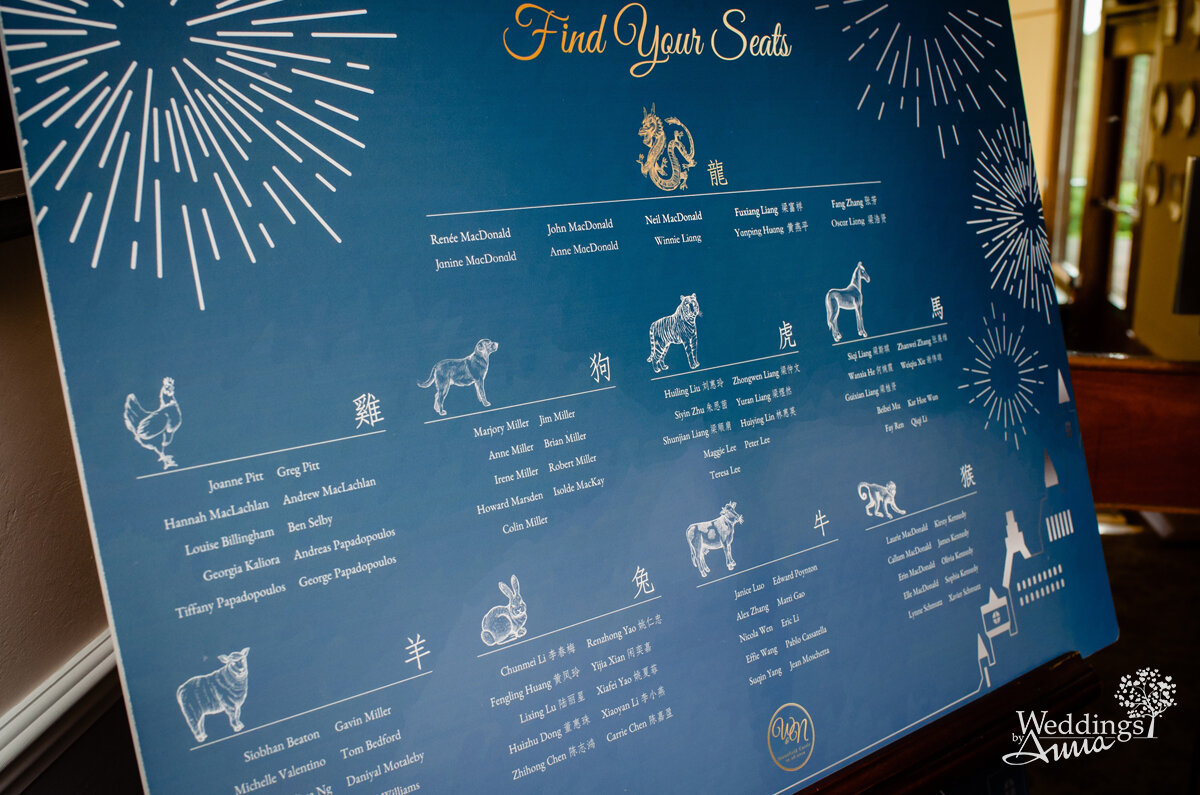 Find Your Seats
龍
Renée MacDonald John MacDonald Neil MacDonald Fuxiang Liang 梁富祥 Fang Zhang 张芳
Janine MacDonald Anne MacDonald Winnie Liang Yanping Huang 黄燕平 Oscar Liang 梁浩贤
雞
Joanne Pitt Greg Pitt
Hannah MacLachlan Andrew MacLachlan
Louise Billingham Ben Selby
Georgia Kaliora Andreas Papadopoulos
Tiffany Papadopoulos George Papadopoulos
狗
Marjory Miller Jim Miller
Anne Miller Brian Miller
Irene Miller Robert Miller
Howard Marsden Isolde MacKay
Colin Miller
虎
Huiling Liu 刘惠玲 Zhongwen Liang 梁仲文
Siyin Zhu 朱思茵 Yuran Liang
Shunjian Liang Huiying Lin 林惠英
Maggie Lee Peter Lee
Teresa Lee
馬
Siqi Liang Zhanwei Zhang
Wanxia He Weiqiu Xie
Guixian Liang
Beibei Mu Kar Hee Wun
Fay Ren Qiqi Li
羊
Siobhan Beaton Gavin Miller
Michelle Valentino Tom Bedford
Ng Daniyal Motaleby
Williams
兔
Chunmei Li 李春梅 Renzhong Yao 姚仁忠
Fengling Huang 黄凤玲 Yijia Xian 闲奕嘉
Lixing Lu 陆丽星 Xiafei Yao 姚夏菲
Huizhu Dong 董惠珠 Xiaoyan Li 李小燕
Zhihong Chen 陈志鸿 Carrie Chen 陈嘉昱
牛
Janice Luo Edward Poynton
Alex Zhang Matti Gao
Nicola Wen Eric Li
Effie Wang Pablo Cassatella
Suqin Yang Jean Moschetta
猴
Laurie MacDonald Kirsty Kennedy
Callum MacDonald James Kennedy
Erin MacDonald Olivia Kennedy
Elle MacDonald Sophia Kennedy
Lynne Schmutz Xavier Schmutz
W&N
Weddings
by Anna